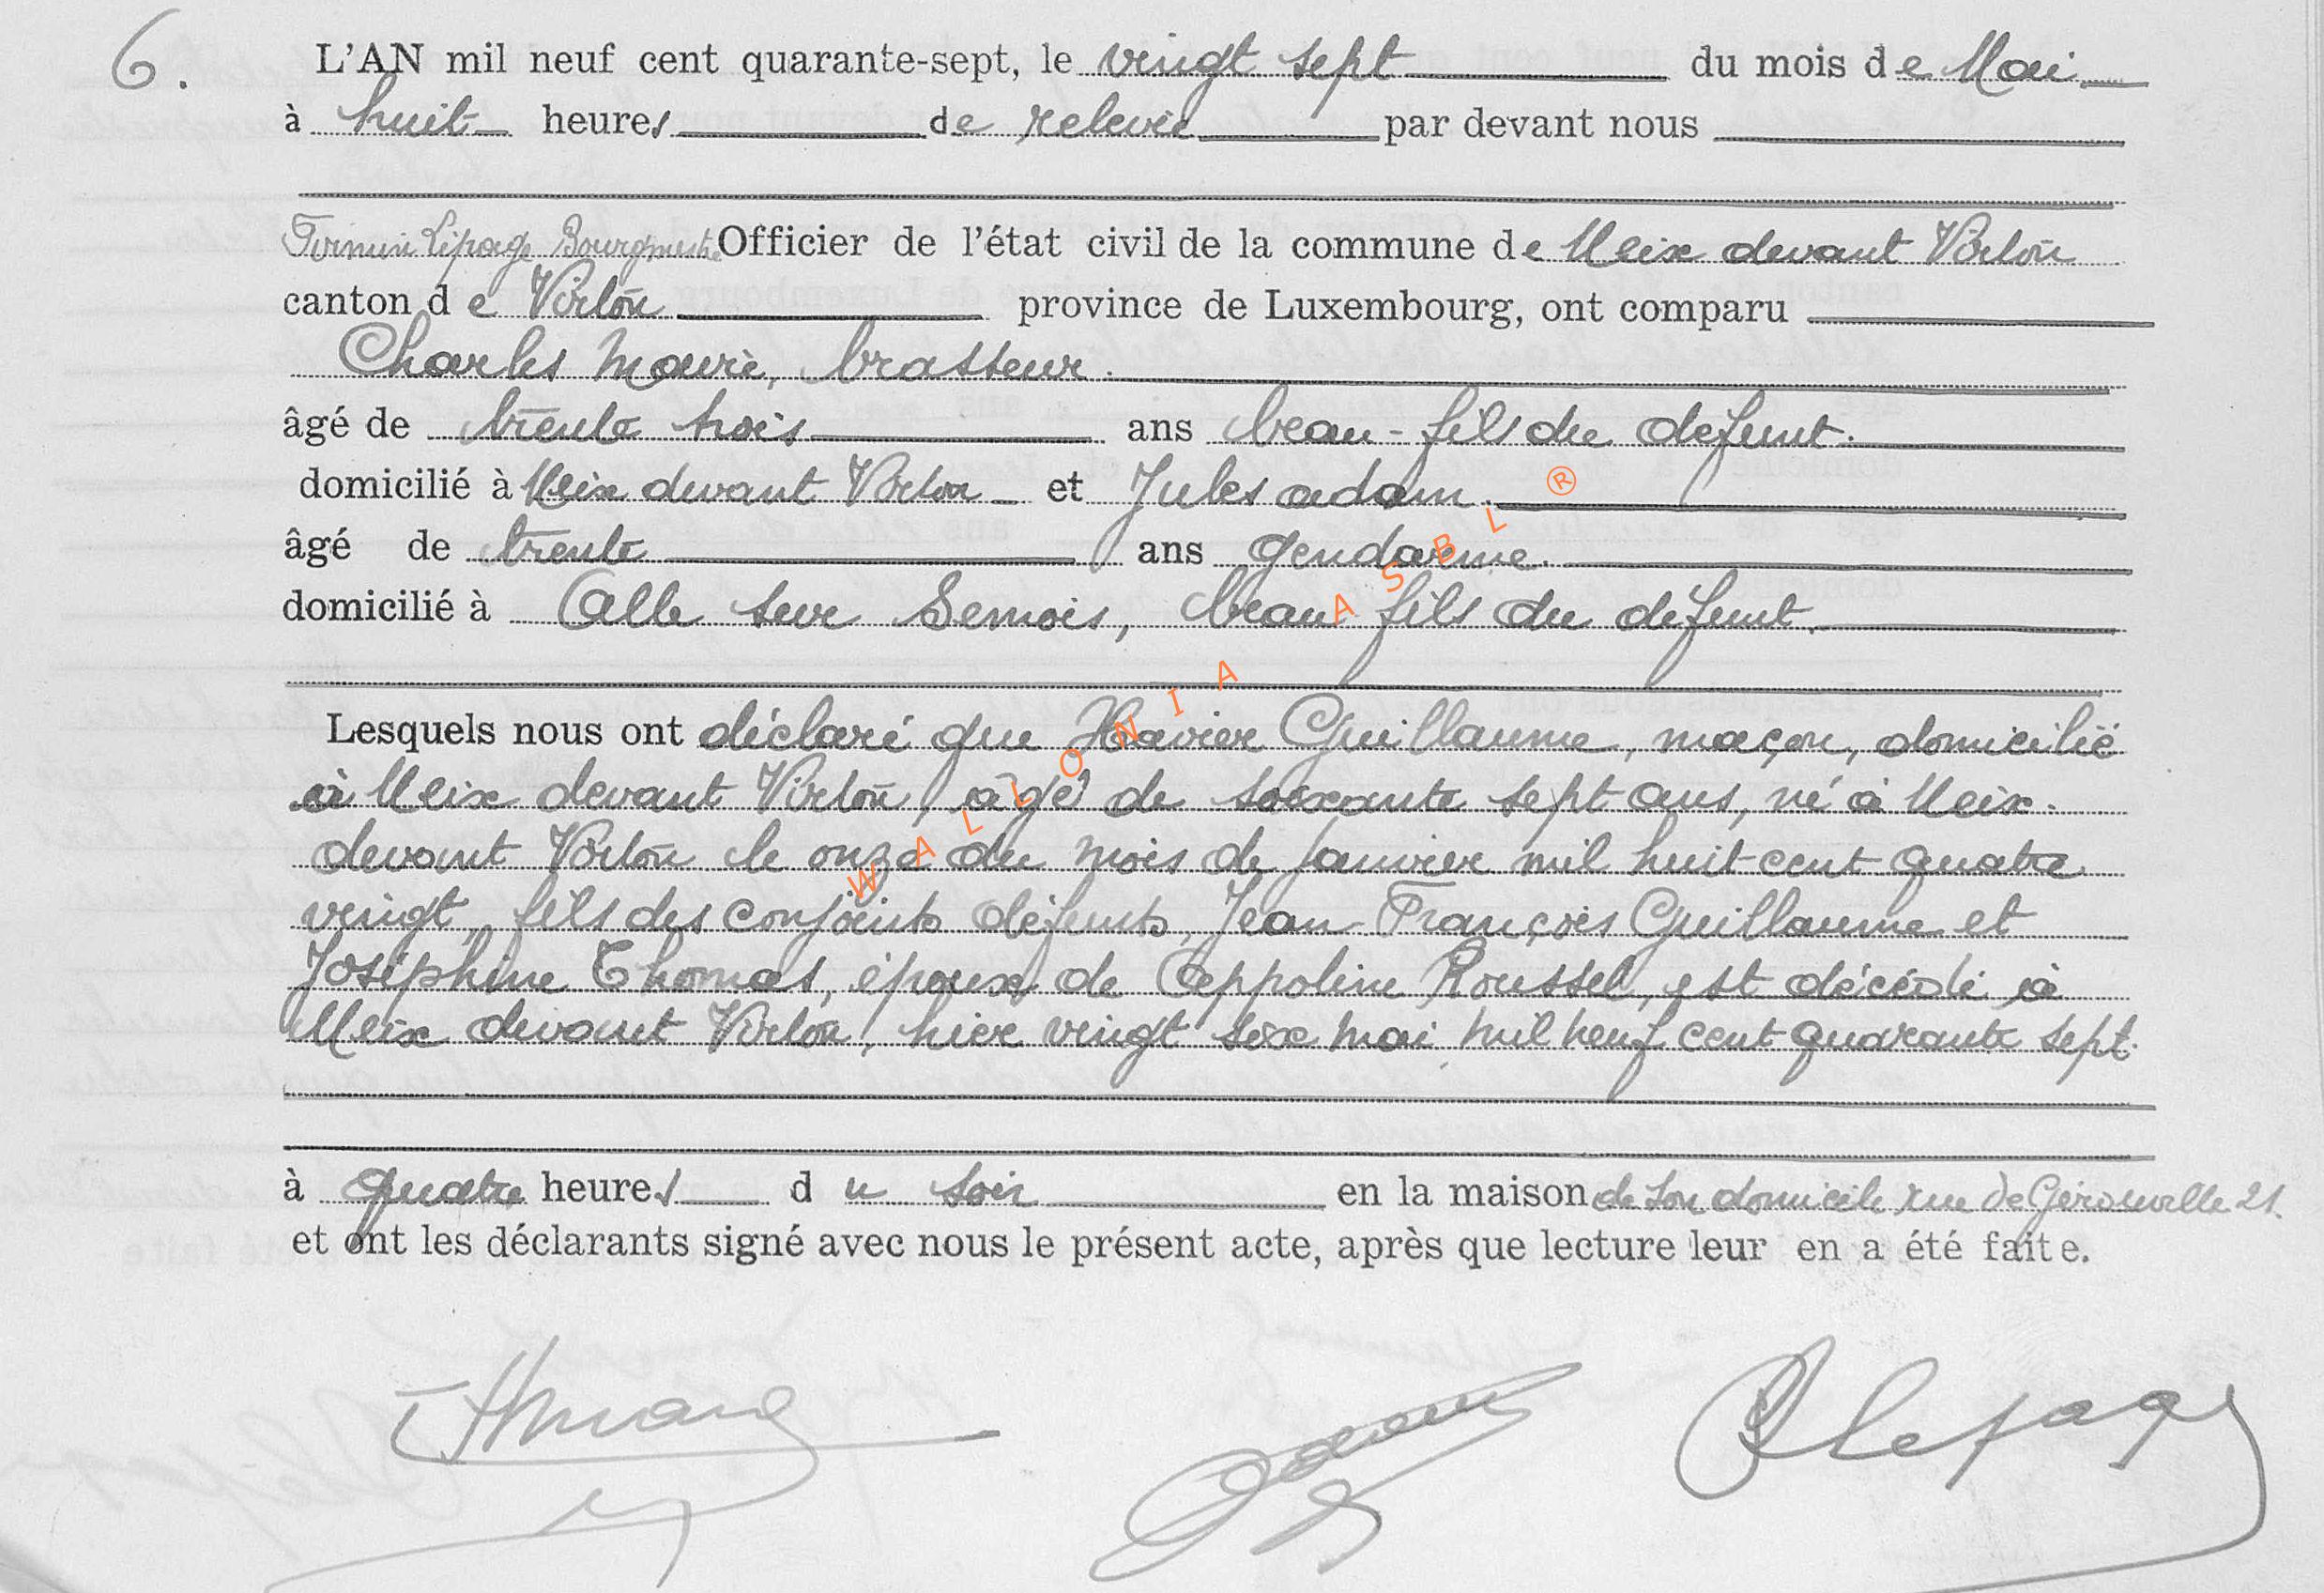 6. L'AN mil neuf cent quarante-sept, le vingt sept du mois de Mai
à huit heures de relevée par devant nous
Firmin Lepage Bourgmestre Officier de l'état civil de la commune de Meix devant Virton
canton de Virton province de Luxembourg, ont comparu
Charles brasseur.
âgé de trente trois ans beau-fils du défunt.
domicilié à Meix devant Virton et Jules Adam.
âgé de trente ans gendarme.
domicilié à Alle sur Semois, beau fils du défunt.
Lesquels nous ont déclaré que Xavier Guillaume, maçon, domicilié
à Meix devant Virton, âgé de soixante sept ans, né à Meix-
devant Virton le onze du mois de Janvier mil huit cent quatre
vingt, fils des conjoints défunts, Jean François Guillaume et
Joséphine Thomas, époux de Roussel, est décédé à
Meix devant Virton, hier vingt six mai mil neuf cent quarante sept.
à quatre heures du soir en la maison de son domicile rue de Gérouville 21.
et ont les déclarants signé avec nous le présent acte, après que lecture leur en a été faite.
Adam
Lepage
WALLONIA ASBL ®